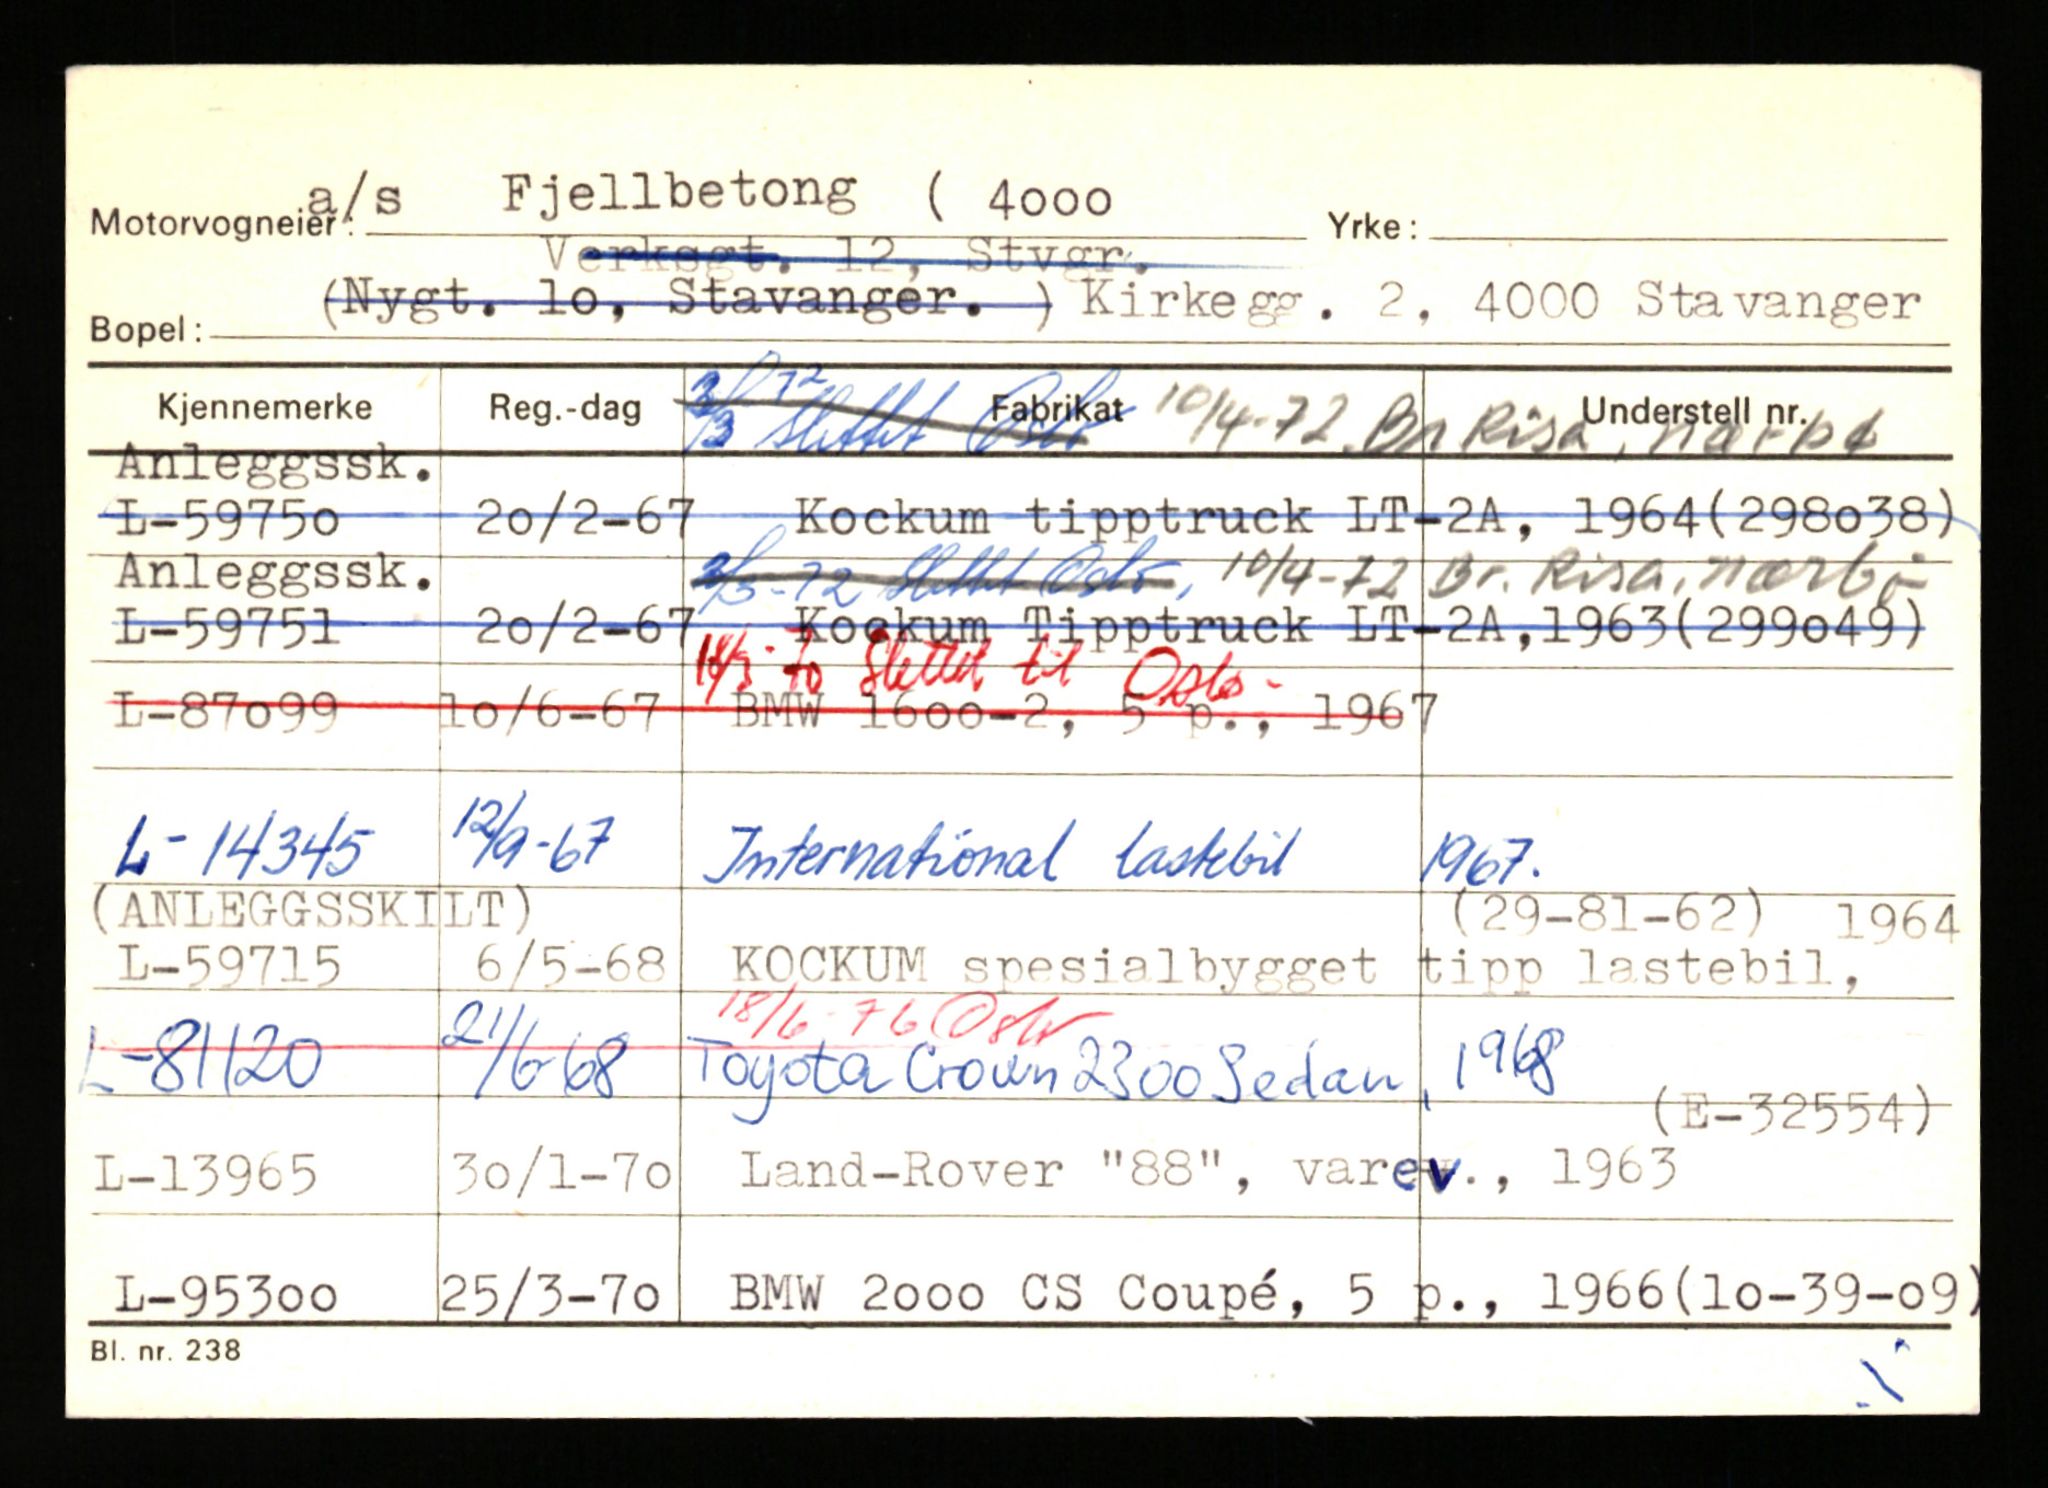 a/s Fjellbetong ( 4000
Motorvogneier: Yrke:
Verksgt. 12, Stvgr.
(Nygt. lo, Stavanger. ) Kirkegg. 2, 4000 Stavanger
Bopel:
Kjennemerke Reg.-dag Fabrikat Understell nr.
slettet Oslo 10/4-72 Br. Risa, nærbø
Anleggssk.
L-5975o 2o/2-67 Kockum tipptruck LT-2A, 1964(298o38)
Anleggssk. 2/3-72 slettet Oslo, 10/4-72 Br. Risa, nærbø
L-59751 2o/2-67 Kockum Tipptruck LT-2A,1963(299o49)
slettet til Oslo-
L-87o99 lo/6-67 BMW 16oo-2, 5 p., 1967
L-14345 12/9-67 International lastebil 1967.
(ANLEGGSSKILT) (29-81-62) 1964
L-59715 6/5-68 KOCKUM spesialbygget tipp lastebil,
18/6-76 Oslo
L-81120 21/6-68 Toyota Crown 2300 Sedan, 1968
(E-32554)
L-13965 3o/1-7o Land-Rover "88", varev., 1963
L-953oo 25/3-7o BMW 2ooo CS Coupé, 5 p., 1966(lo-39-o9)
Bl. nr. 238